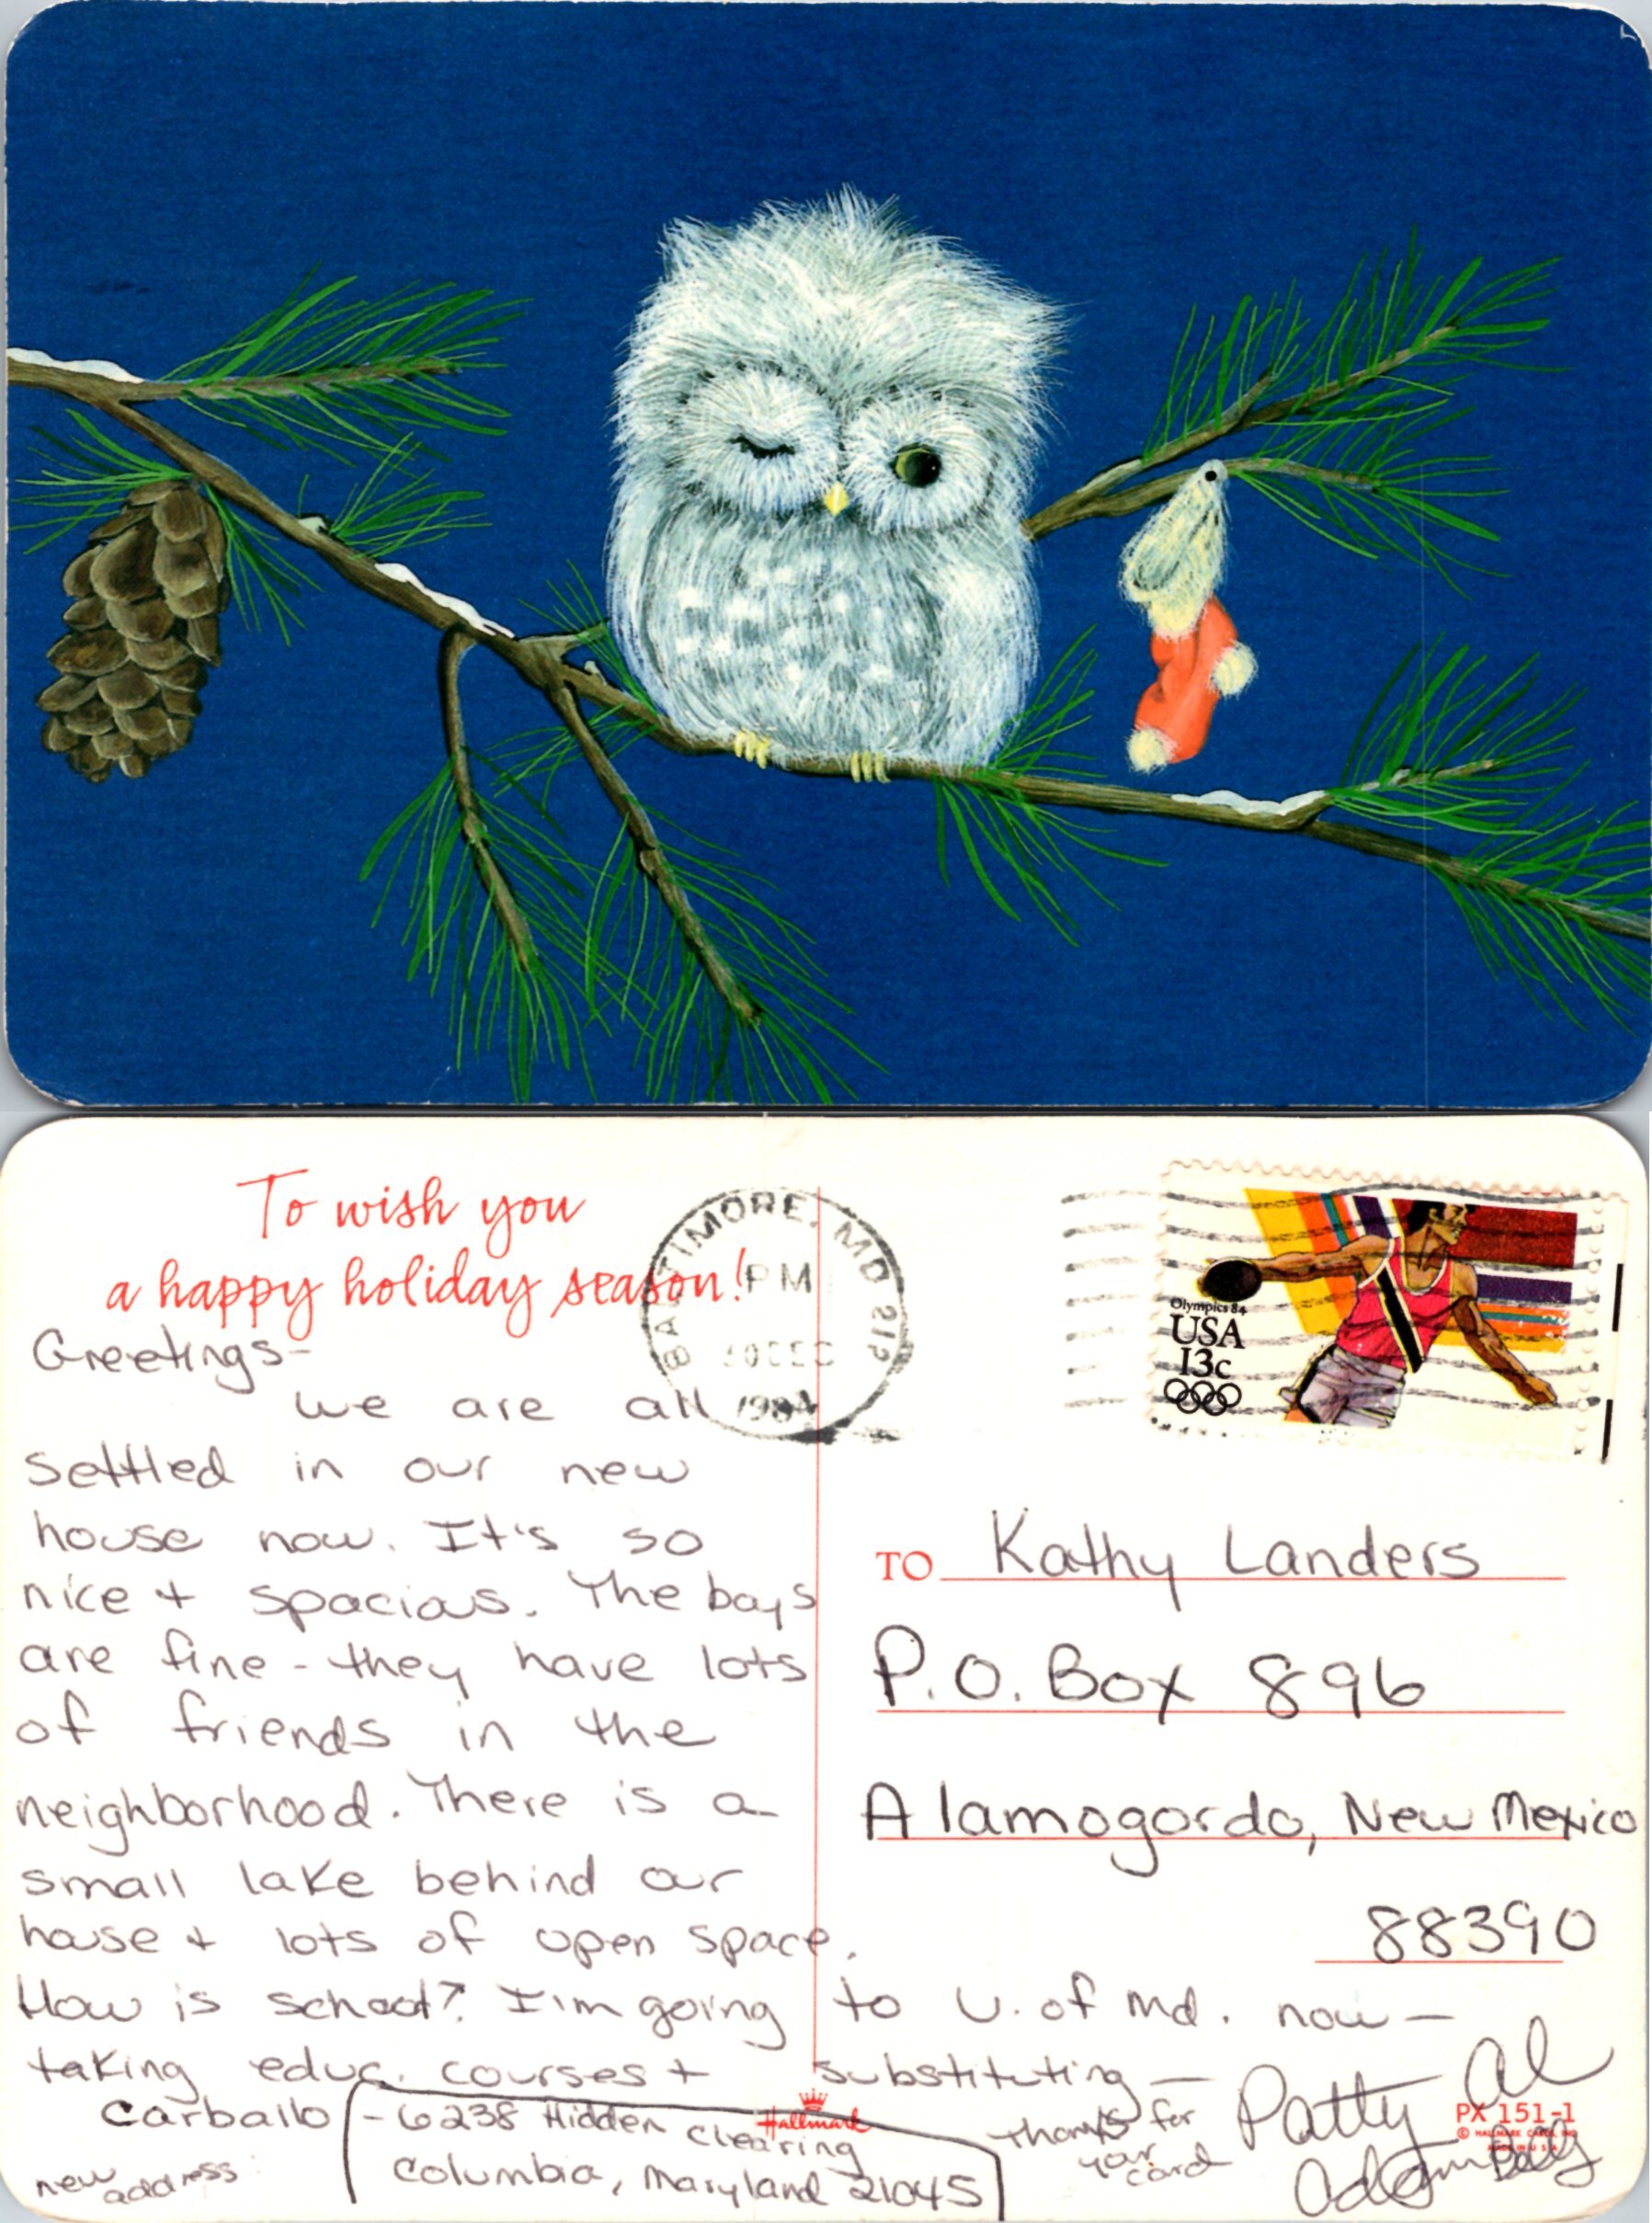 To wish you
a happy holiday season!
BALTIMORE, MD 212
PM
DEC
1984
Olympics 84
USA
13c
Greetings-
We are all
settled in our new
house now. It's so
nice + spacious. The boys
are fine - they have lots
of friends in the
neighborhood. There is a
small lake behind our
house + lots of open space.
How is school? I'm going to U. of Md. now —
taking educ. courses + substituting —
TO Kathy Landers
P.O. Box 896
Alamogordo, New Mexico
88390
Carballo - 6238 Hidden Clearing
Columbia, Maryland 21045
new address:
Hallmark
Thanks for
your card
Patty Al
Adam
PX 151-1
© HALLMARK CARDS, INC.
MADE IN U S A